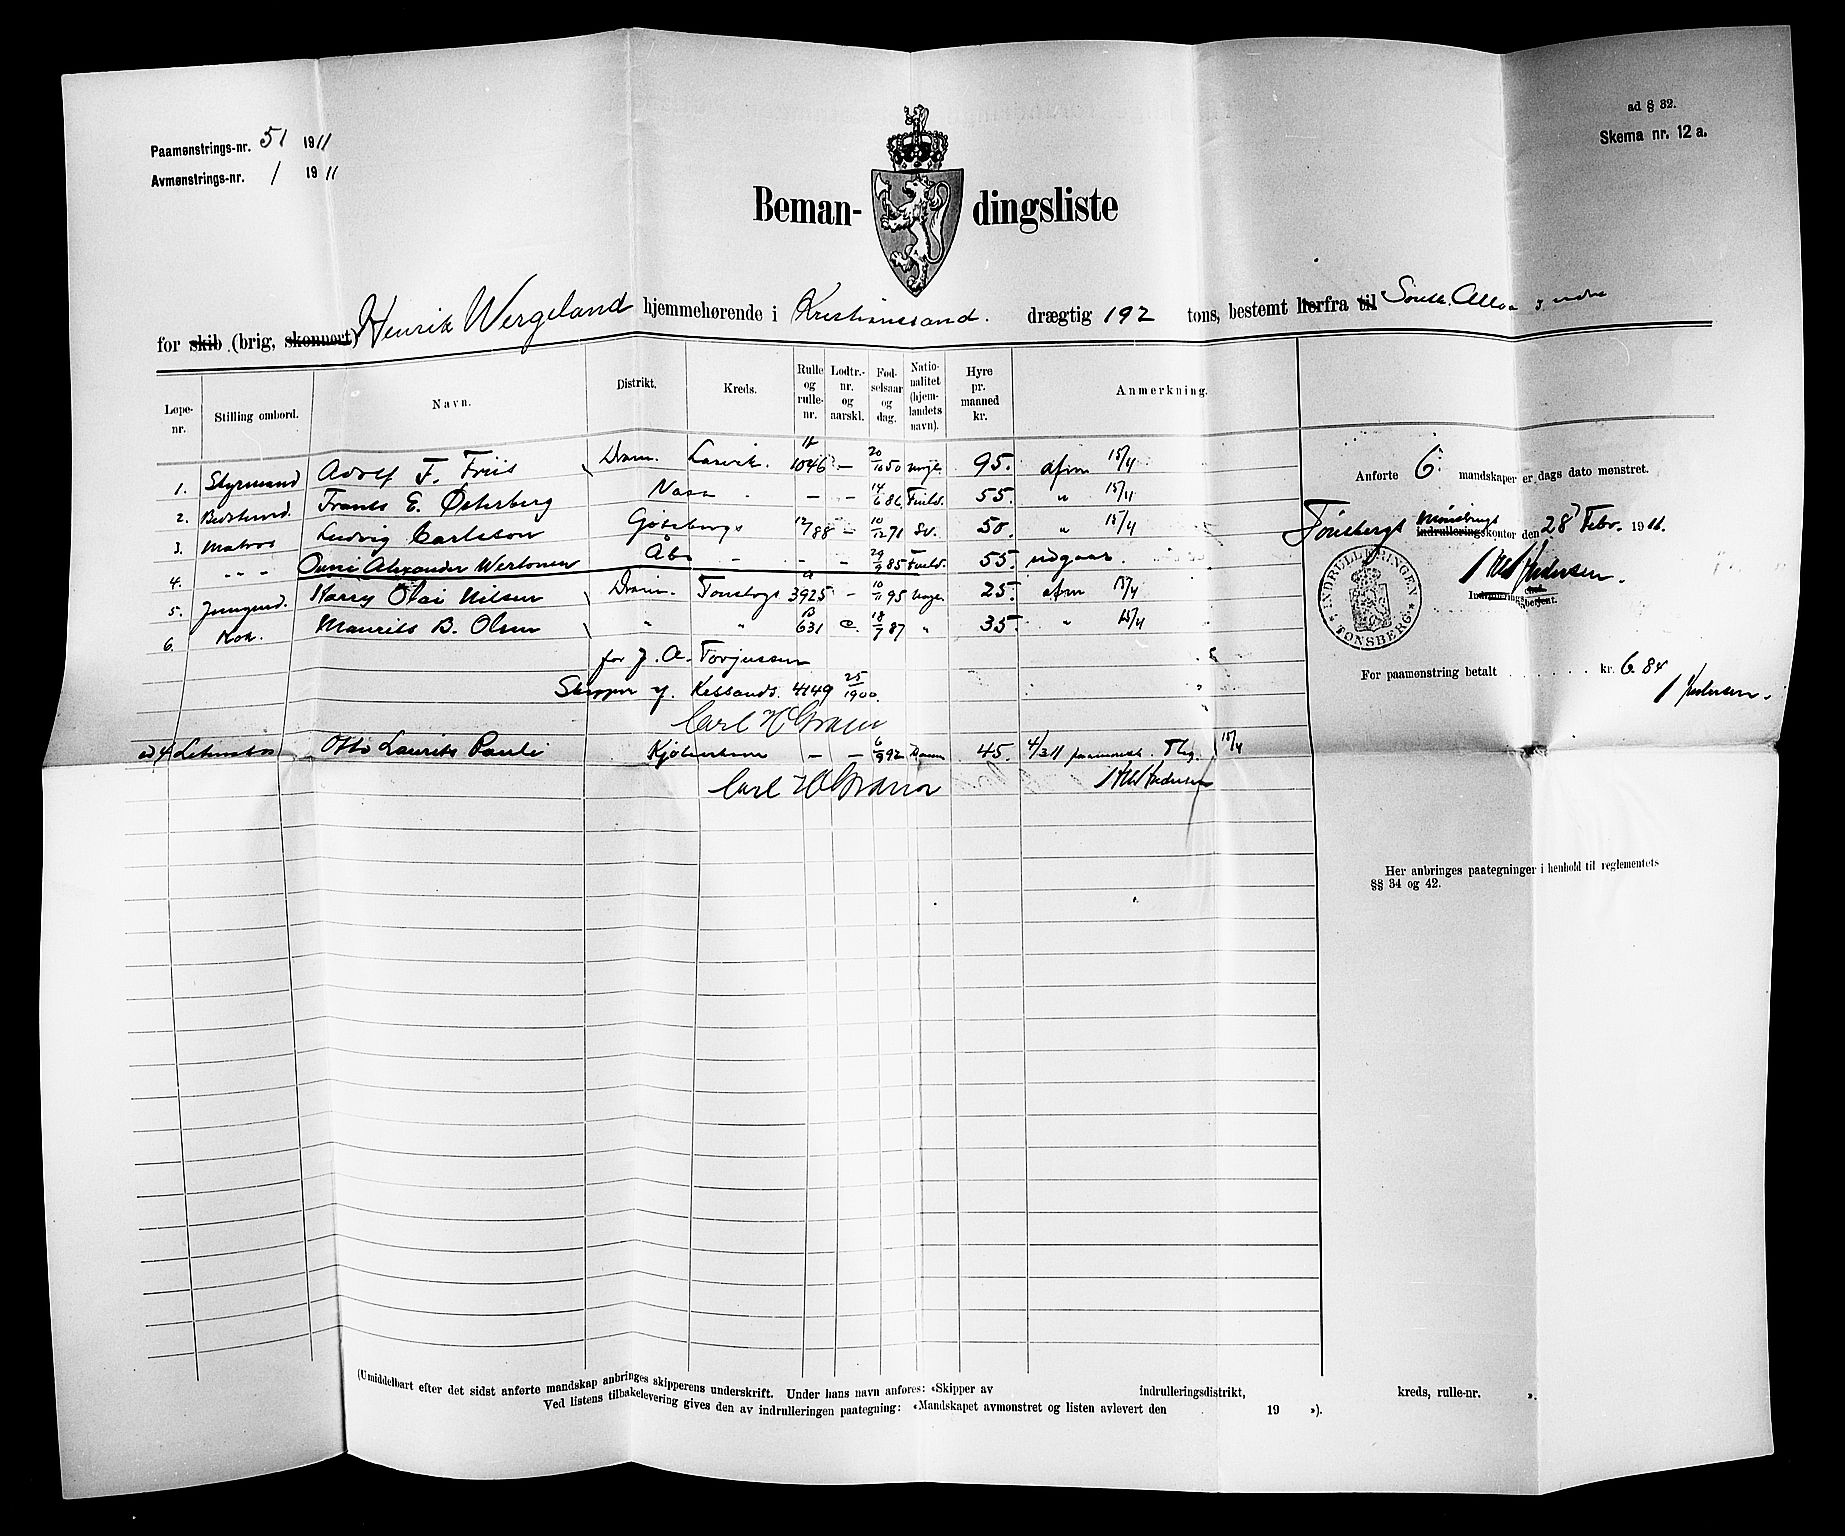 ad § 32.
Skema nr. 12 a.
Paamønstrings-nr. 51 1911
Avmønstrings-nr. 1 1911
Beman- dingsliste
for skib (brig, skonnert) Henrik Wergeland hjemmehørende i Kristianssand. drægtig 192 tons, bestemt herfra til South Alloa
Løpe-nr. Stilling ombord. Navn. Distrikt. Kreds. Rulle og rulle-nr. Lodtr.-nr. og aarskl. Fød-selsaar og dag. Natio-nalitet (hjem-landets navn). Hyre pr. maaned kr. Anmerkning.
1. Styrmand Adolf F. Friis Dram. Larvik. 1046 — 20/10 50 Norge 95. afm 15/4
2. Bestmd. Frants E. Østerberg Nasa — — 14/6 86 Finld. 55. " 15/4
3. Matros Ludvig Carlsson Göteborgs 12/88 — 10/12 71 Sv. 50. " 15/4
4. " Alexander Wertonen Åbo — — — 29/9 85 Finld. 55. udgaar.
5. Jungmd. Harry Olai Nilsen Dram. Tønsbergs 3925 — 10/11 95 Norge 25. afm 15/4
6. Kok. Maurits B. Olsen " " B 631 C. 18/7 87 " 35. " 15/4
for J. A. Torjussen
Skipper af. Krssands. 4149 25/1900.
Carl W Gran
ad 4 Letmatros Otto Laurits Pauli Kjøbenhavn — — 6/9 92 Danm 45. 4/3 11 paamønst. Tbg. 15/4
Carl W Gran
Andersen
Anførte 6 mandskaper er dags dato mønstret.
Tønsbergs Mønstrings indrulleringskontor den 28 Febr. 1911.
Andersen.
Indrulleringsbetjent.
INDRULLERINGEN TØNSBERG
For paamønstring betalt kr. 6.84
Andersen.
Her anbringes paategninger i henhold til reglementets
§§ 34 og 42.
(Umiddelbart efter det sidst anførte mandskap anbringes skipperens underskrift. Under hans navn anføres: «Skipper av indrulleringsdistrikt, kreds, rulle-nr. ».
Ved listens tilbakelevering gives den av indrulleringen paategning: «Mandskapet avmønstret og listen avlevert den 19 »).